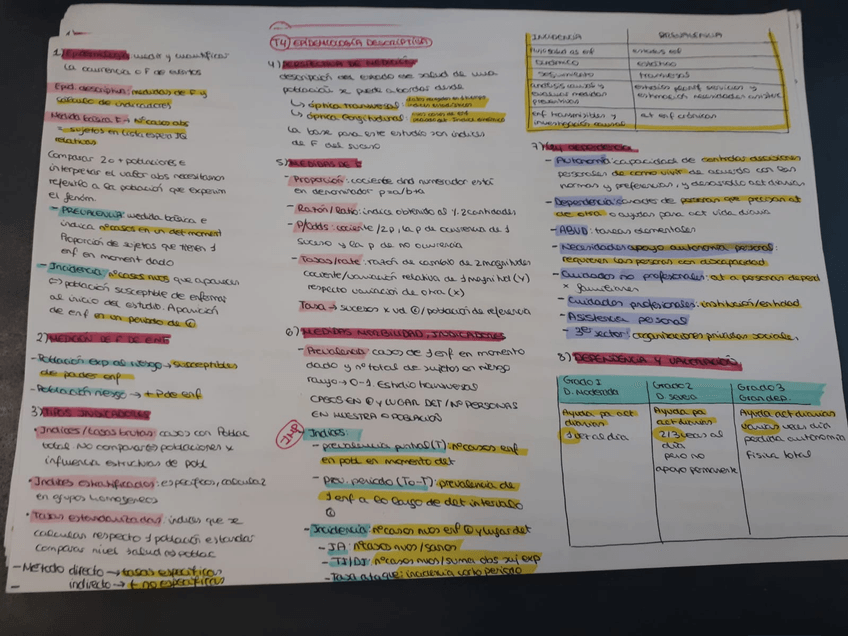 1) Epidemiología: medir y cuantificar
la ocurrencia o F de eventos
Epid descriptiva: medidas de F y
cálculo de indicadores
Medida básica F → nº casos abs
= sujetos en lista espera IQ
relativas
Comparar 2 o + poblaciones e
interpretar el valor abs necesitamos
referirlo a la población que experim
el fenóm.
- PREVALENCIA: medida básica e
indica nº casos en un det moment
Proporción de sujetos que tienen 1
enf en moment dado
- Incidencia nº casos nuevos que aparecen
población susceptible de enfermar
al inicio del estudio. Aparición
de enf en un periodo de t
2) MEDICIÓN DE F DE ENF
- Población exp al riesgo → susceptibles
de padec enf
- Población riesgo → + P de enf
3) TIPOS INDICADORES
• Indices/tasas brutas casos con Poblac
total. No comparar 2 poblaciones x
influencia estructuras de pobl
• Indices estratificados: específicos, calcula 2
en grupos homogéneos
• Tasas estandarizadas: indices que se
calculan respecto 1 población estandar
comparar nivel salud 2 poblac
- Método directo → tasas específicas
indirecto → + no específicas
T4) EPIDEMIOLOGÍA DESCRIPTIVA
4) PERSPECTIVA DE MEDICIÓN
descripción del estado de salud de una
población se puede abordar desde
↳ óptica transversal:
↳ óptica longitudinal:
La base para este estudio son índices
de F del suceso
5) MEDIDAS DE F
- Proporción: cociente dnd numerador está
en denominador p=a/b+a
- Razón/Ratio: índice obtenido al % 2 cantidades
- P/odds: cociente /2p, la p de ocurrencia de 1
suceso y la p de no ocurrencia
- Tasas/rate: razón de cambio de 2 magnitudes
cociente/variación relativa de 1 magnitud (Y)
respecto variación de otra (x)
Tasa → sucesos x ud t/población de referencia
6) MEDIDAS MORBILIDAD, INDICADORES
- Prevalencia: casos de 1 enf en momento
dado y nº total de sujetos en riesgo
rango → 0-1. Estudio transversal
CASOS EN t Y LUGAR DET / Nº PERSONAS
EN NUESTRA POBLACIÓN
IMP
Indices:
- prevalencia puntual (T): nº casos enf
en pobl en momento det
- prev. periodo (To-T): prevalencia de
1 enf a lo largo de det intervalo
t
- Incidencia: nº casos nuevos enf t y lugar det
- IA: nº casos nuevos/sanos
- TI/DI: nº casos nuevos/suma abs suj exp
- Tasa ataque: incidencia corto periodo
INCIDENCIA PREVALENCIA
dinámico estático
seguimiento transversal
análisis causas y
evaluar medidas
preventivas
enf transmisibles y
investigación causal
enf crónicas
7) Ley dependencia
- Autonomía: capacidad de controlar decisiones
personales de como vivir de acuerdo con las
normas y preferencias, y desarrollo act diarias
- Dependencia: carácter de personas que precisan at
de otra o ayudas para act vida diaria
- ABVD: tareas elementales
- Necesidades apoyo autonomía personal:
requieren las personas con discapacidad
- Cuidados no profesionales: at a personas depend
x familiares
- Cuidados profesionales: institución/entidad
- Asistencia personal
- 3er sector: organizaciones privadas sociales
8) DEPENDENCIA Y VALORACIÓN
Grado 1
D. Moderada
Grado 2
D. severa
Grado 3
Gran dep.
Ayuda pa act
diarias
1 vez al dia
Ayuda pa
act diarias
2/3 veces al
día
pero no
apoyo permanente
Ayuda act diarias
varias veces dia
perdida autonomía
física total